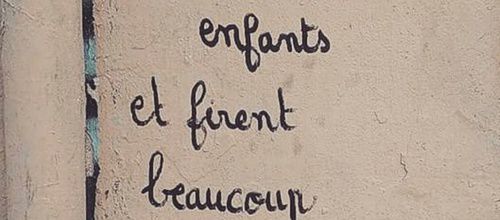 enfants
et firent
beaucoup